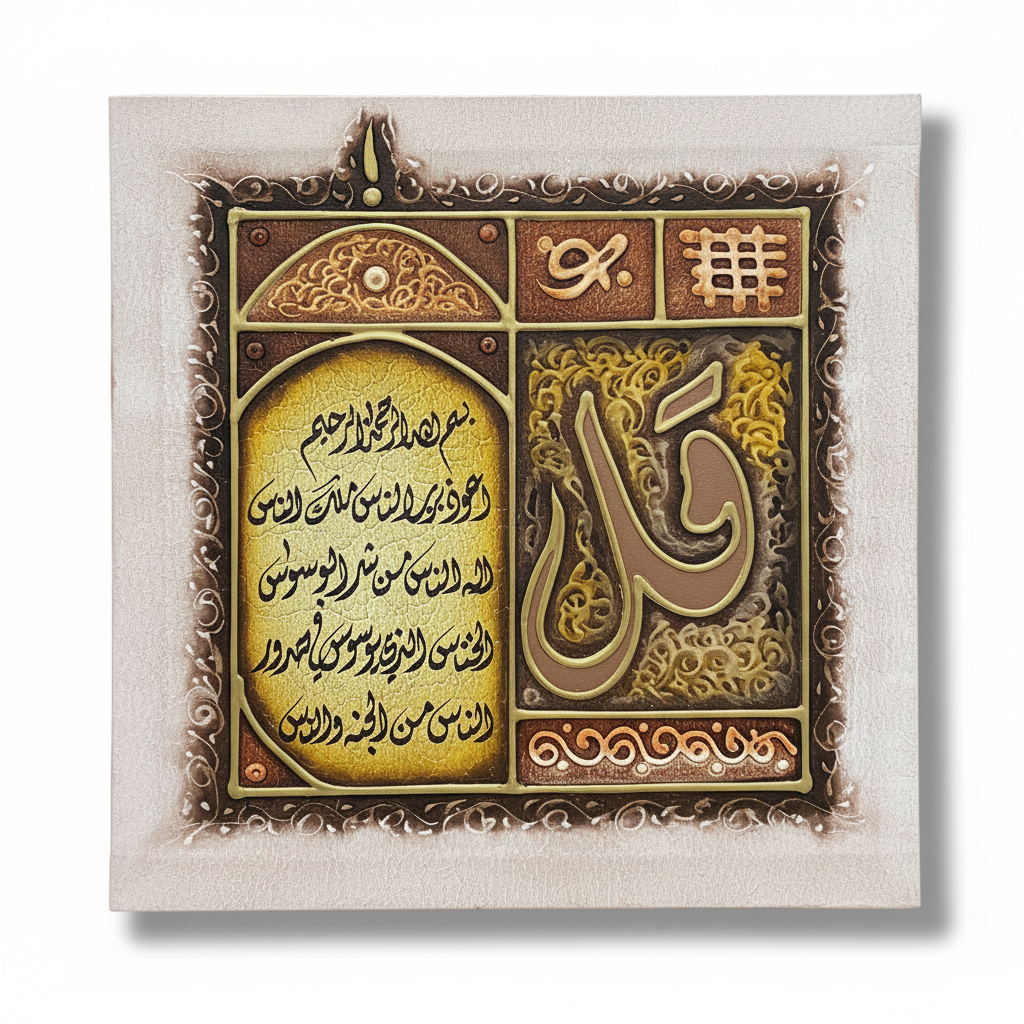 قل
بسم الله الرحمن الرحيم
اعوذ برب الناس ملك الناس
اله الناس من شر الوسواس
الخناس الذي يوسوس في صدور
الناس من الجنه والناس